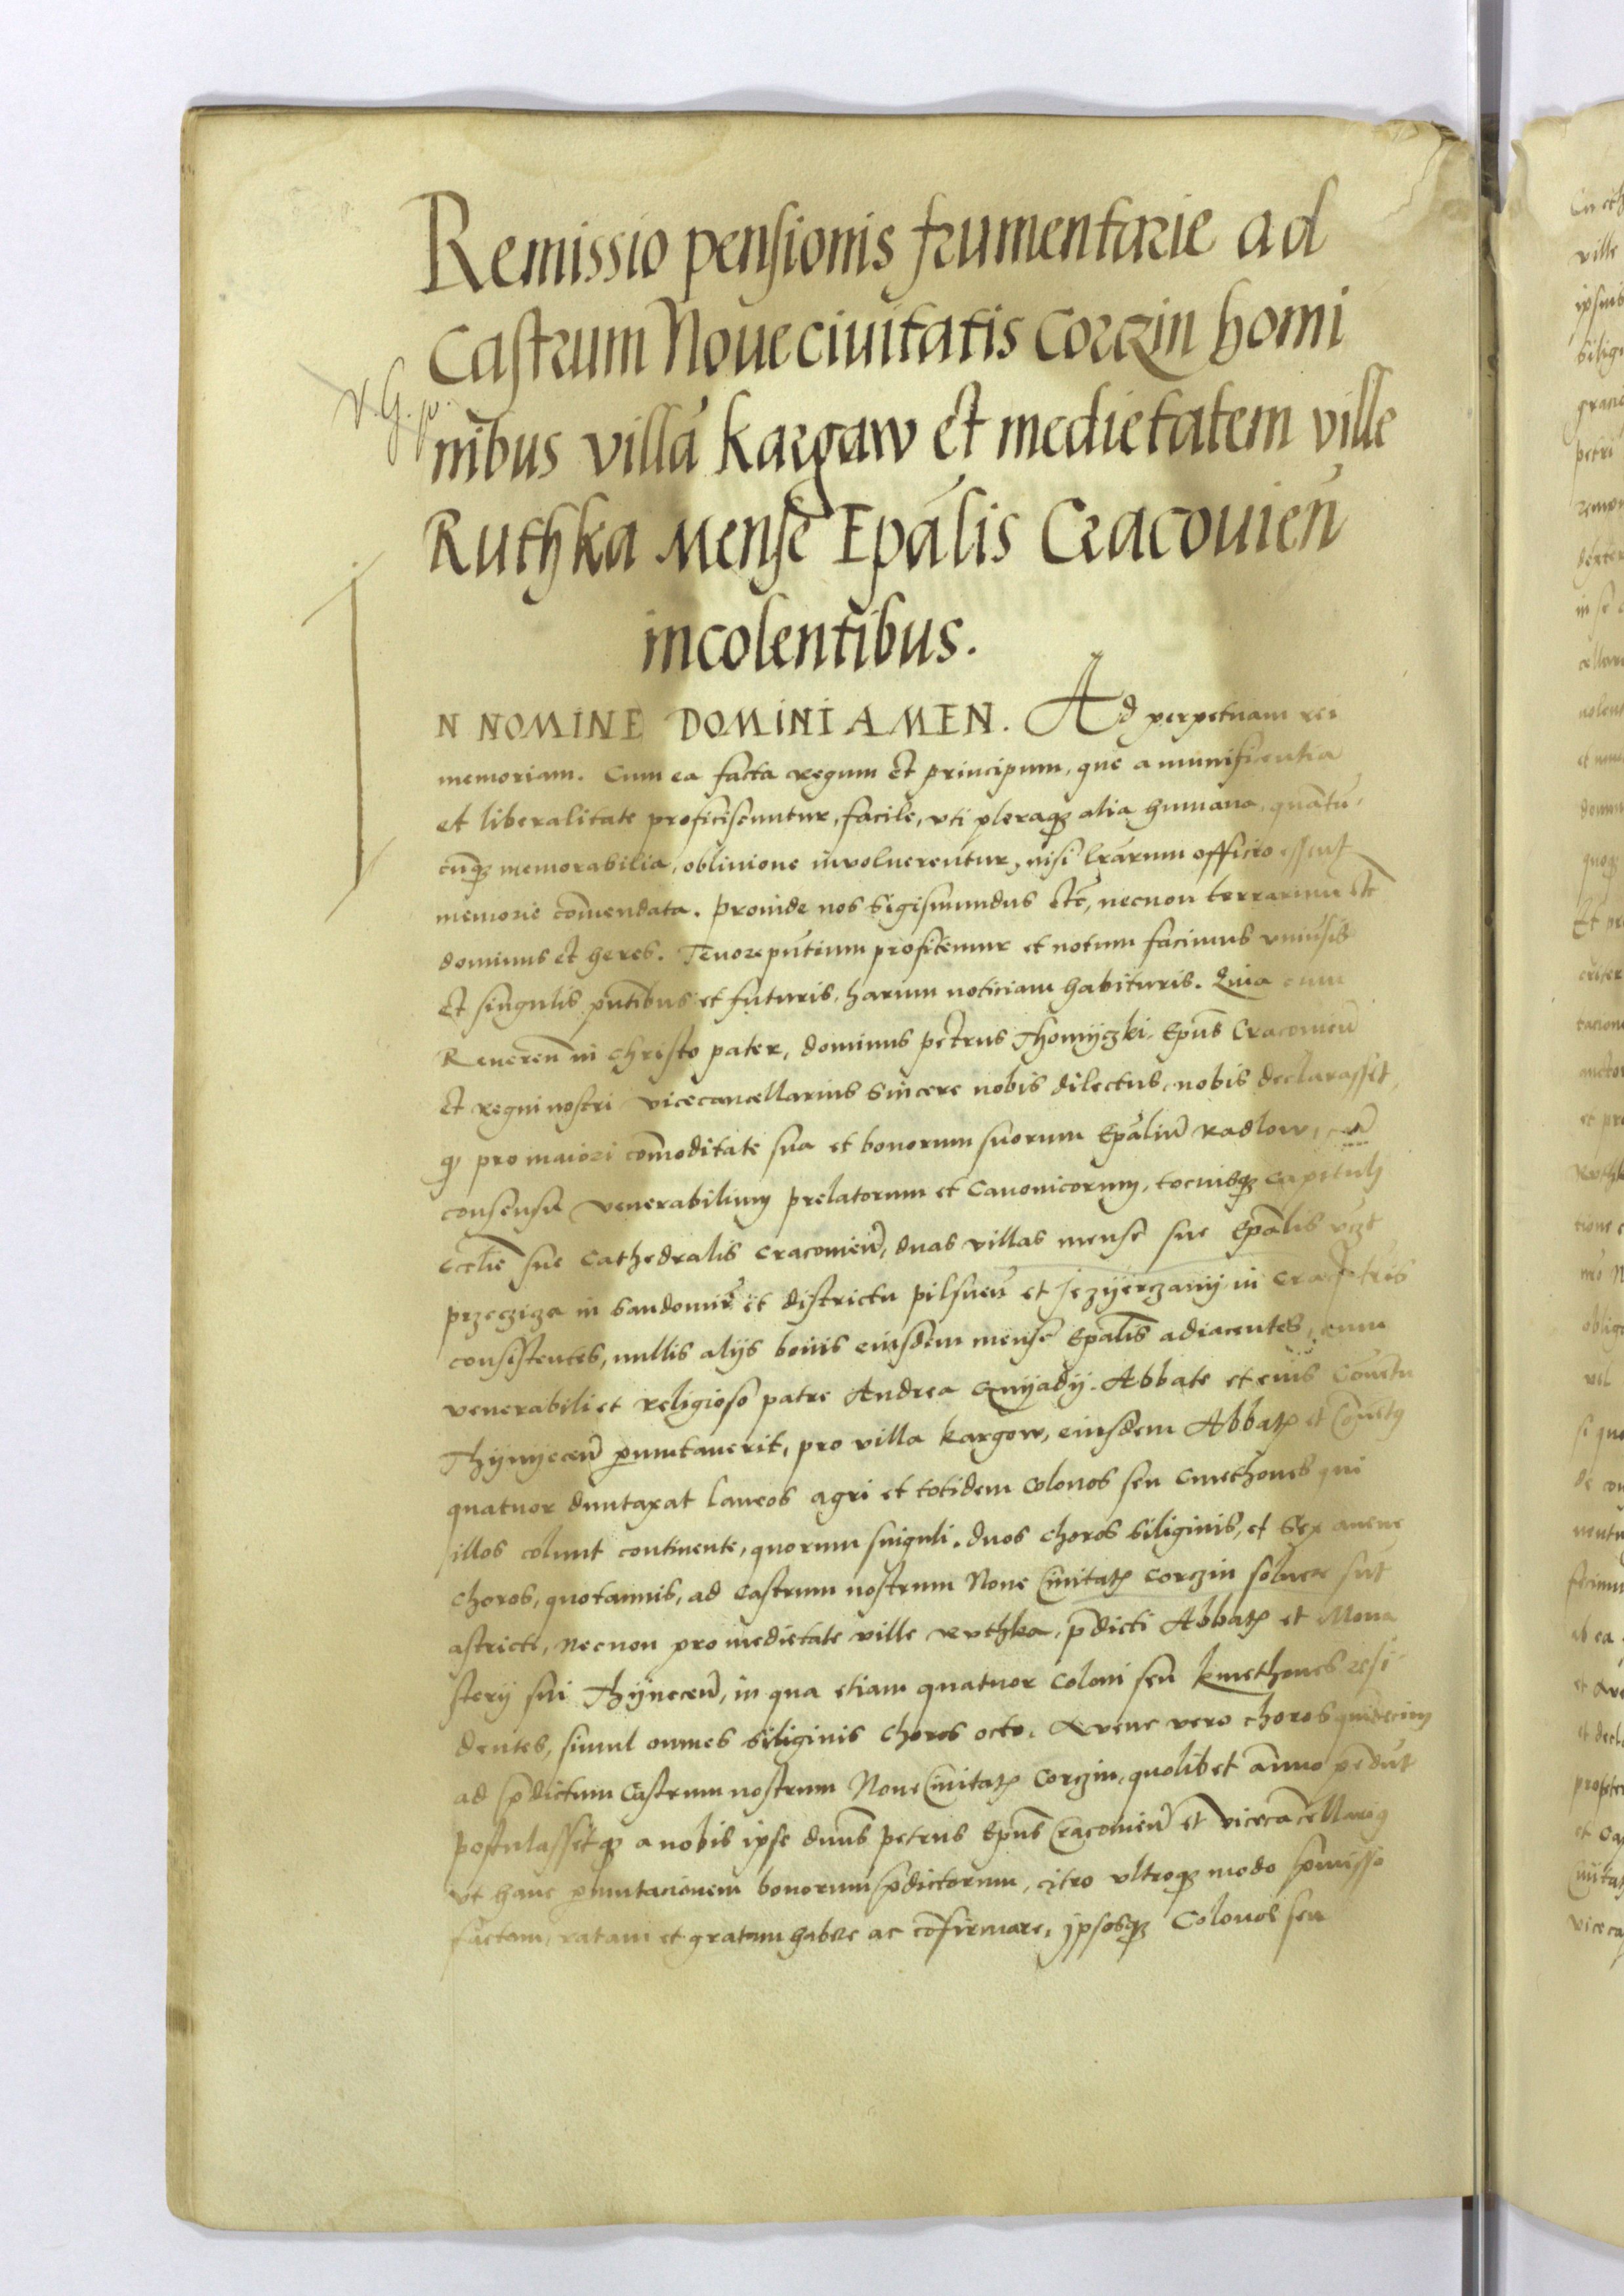 Remissio pensionis frumentarie ad
Castrum Noue ciuitatis Corzin homi
V. G. p.
nibus villā Kargaw et medietatem ville
Ruthka Mense Epālis Cracouien̄
incolentibus.
IN NOMINE DOMINI AMEN. Ad perpetuam rei
memoriam. Cum ea facta regum et principum, que a munificentia
et liberalitate proficiscuntur, facile, vti pleraqꝫ alia humana, quātū,
cūqꝫ memorabilia, obliuione inuoluerentur, nisi lrārum officio essent
memorie com̄endata. Proinde nos Sigismundus etc̄, necnon terrarum etc̄
dominus et heres. Tenore pn̄tium profitemur et notum facimus vniu͡sis
et singulis pn̄tibus et futuris, harum noticiam habituris. Quia cum
Reueren̄ in Christo pater, dominus Petrus Thomyczki Ep̄us Cracouien̄
et regni nostri vicecancellarius Sincere nobis dilectus, nobis declarasset,
qꝫ pro maiori com̄oditate sua et bonorum suorum Ep̄aliū Radlow, cū
consensu venerabilium prelatorum et Canonicorum, tociusqꝫ Capituli
Ecclīe sue Cathedralis Cracouien̄, duas villas mense sue Ep̄alis vꝫt
Przecziza in Sandomir̄ et districtu Pilsnen̄ et Jezyerzany in Crac̄ tr̄is
consistentes, nullis alijs bonis eiusdem mense Ep̄alis adiacentes, cum
venerabili et religioso patre Andrea Gnyady Abbate et eius Cōuētu
Thynyecen̄ ꝑmutauerit, pro villa Kargow, eiusdem Abbatꝭ et Cōuētꝰ
quatuor duntaxat laneos agri et totidem Colonos seu Cmethones qui
illos colunt continente, quorum singuli duos choros siliginis, et Sex auene
choros, quotannis, ad Castrum nostrum Noue Ciuitatꝭ Corzin soluer̄ sūt
astricti, Necnon pro medietate ville Ruthka, p̄dicti Abbatꝭ et Mona
sterij sui Thynecen̄, in qua etiam quatuor Coloni seu Kmethones resi
dentes, simul omnes siliginis choros octo, Auene vero choros quīdecim
ad p̄dictum Castrum nostrum Noue Ciuitatꝭ Corzin, quolibet anno pēdūt
postulassetqꝫ a nobis ipse dn̄us Petrus Ep̄us Cracouien̄ et vicecācellariꝰ
vt hanc ꝑmutacionem bonorum p̄dictorum, citro vltroqꝫ modo p̄misso
factam, ratam et gratam haber̄e ac cōfirmare, ipsosqꝫ Colonos seu